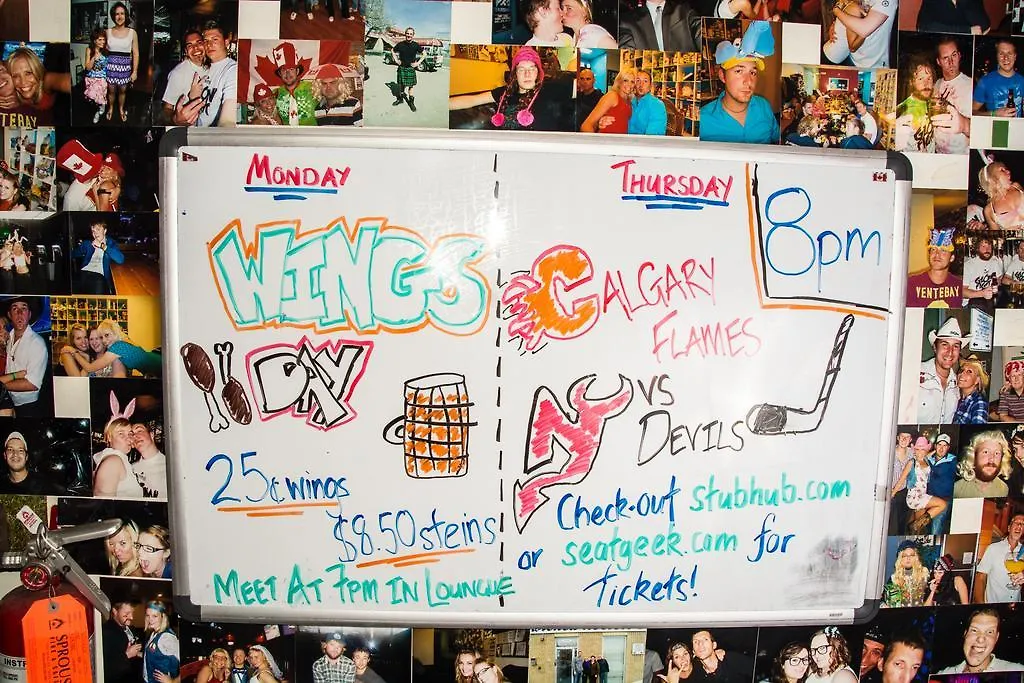 MONDAY
WINGS
DAY
25¢ wings
$8.50 steins
MEET AT 7pm IN LOUNGUE
THURSDAY
8pm
CALGARY
FLAMES
VS
DEVILS
Check-out stubhub.com
or seatgeek.com for
tickets!
YENTEBAY
TEBAY
SPROUS
INST